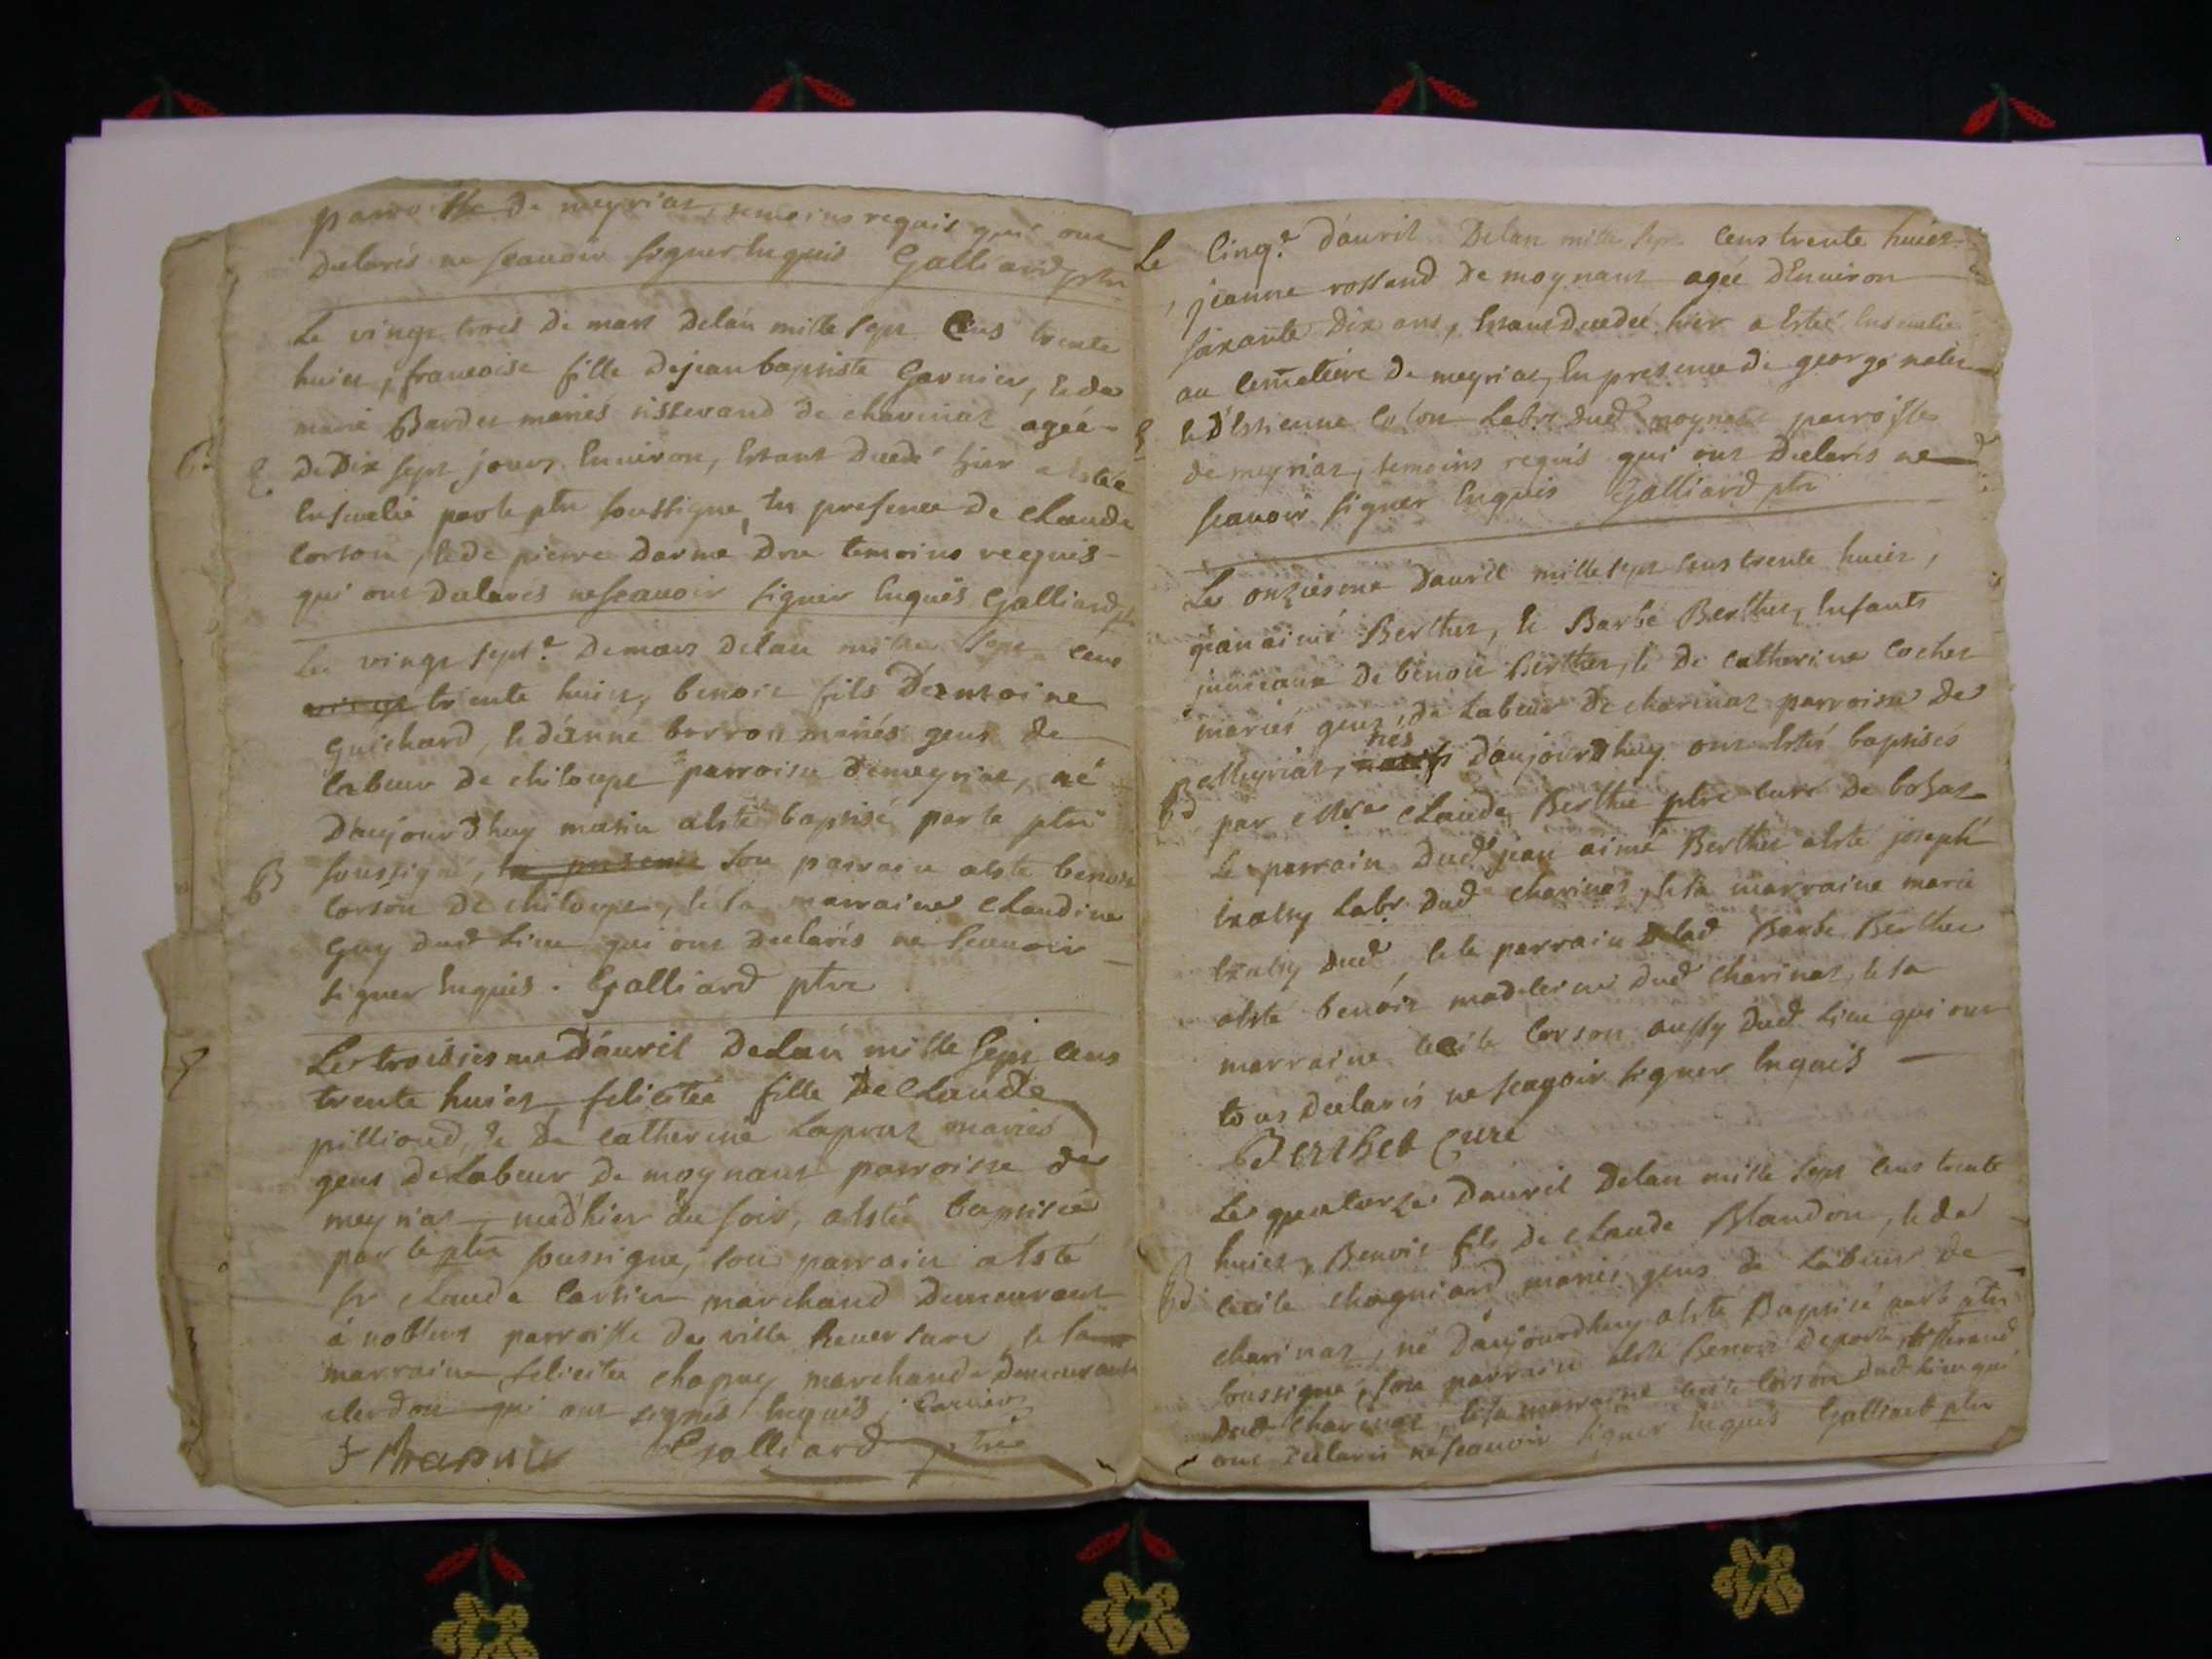 parroisse de meyriat, temoins requis qui ont
declarés ne scauoir signer Enquis Galliard ptre
Le vingt trois de mars delan mille sept Cens trente
huict, francoise fille de jean baptiste Garnier, & de
marie Bardet mariés tisserand de charinaz agée
De Dix sept jours Enuiron, Estant Decedé hier a Estée
Enseuelie par le ptre soussigne, En presence de claude
corson, & de pierre darme dru temoins requis
qui ont Declarés ne scauoir signer Enquis Galliard ptre
Le vingt sept.e de mars delan mille sept cens
vingt trente huict, benoit fils D'antoine
Guichard, & d'anne borron mariés gens de
labeur de chiloupt parroisse de meyriat, né
D'aujourdhuy matin a esté baptisé par le ptre
soussigné, En presence son parrain a esté benoit
corson de chiloupt, & sa marraine claudine
Guy dud lieu qui ont declarés ne scauoir
signer Enquis. Galliard ptre
Le troisiesme D'auril de Lan mille sept cens
trente huict, felicitée fille de claude
pillioud, & De catherine Lapraz mariés
gens de Labeur de moynant parroisse de
meyriat, née d'hier au soir, a estée baptisée
par le ptre soussigné, son parrain a esté
sr claude carrier marchand Demeurant
á noblens parroisse de ville Reuersure, & sa
marraine felicitée chapuy marchande Demeurante
cerdon qui ont signés Enquis; carrier
f chapuis Galliard ptre
Le Cinq.e d'auril Delan mille sept Cens trente huict
jeanne rolland de moynant agée d'Enuiron
soixante Dix ans, Estant Decedeé hier a Estée Enseuelie
au cemetiére de meyriat, En presence de george
& d'Estienne colon Labr dud moynant parroisse
de meyriat, temoins requis qui ont Declarés ne
scauoir signer Enquis Galliard ptre
Le onziesme D'auril mille sept Cens trente huict,
jean aimé Berthet, & Barbe Berthet, Enfants
jumeaux de benoit Berthet, & De catherine cochet
mariés gens de Labeur de charinaz parroisse de
Meyriat, nés D'aujourdhuy ont Estés baptisés
par Mre claude Berthet ptre curé de bohaz
Le parrain dud jean aimé Berthet a esté joseph
Labr. dud charinaz, & sa marraine marie
dud & le parrain de lad Barbe Berthet
a esté benoit dud charinaz, & sa
marraine cecile corson aussy dud. lieu qui ont
tous declarés ne scauoir signer Enquis
Berthet Curé
Le quatorze D'auril Delan mille sept cens trente
huict, Benoit fils de claude Blandon, & de
cecile chagniard mariés gens de Labeur de
charinaz, né D'aujourdhuy a esté Baptisé par le ptre
soussigné, son parrain a esté Benoit Deporte tisserand
dud charinaz, & sa marraine cecile corson dud lieu qui
ont declarés ne scauoir signer Enquis Galliard ptre